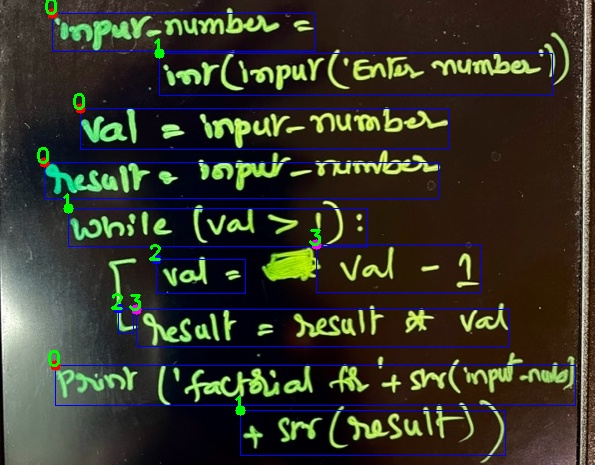 input_number =
int(input('Enter number'))
val = input_number
result = input_number
while (val > 1):
val = val - 1
result = result * val
print ('factorial for' + str(input_numb)
+ str(result))
0
1
0
0
1
2
3
2
3
0
1